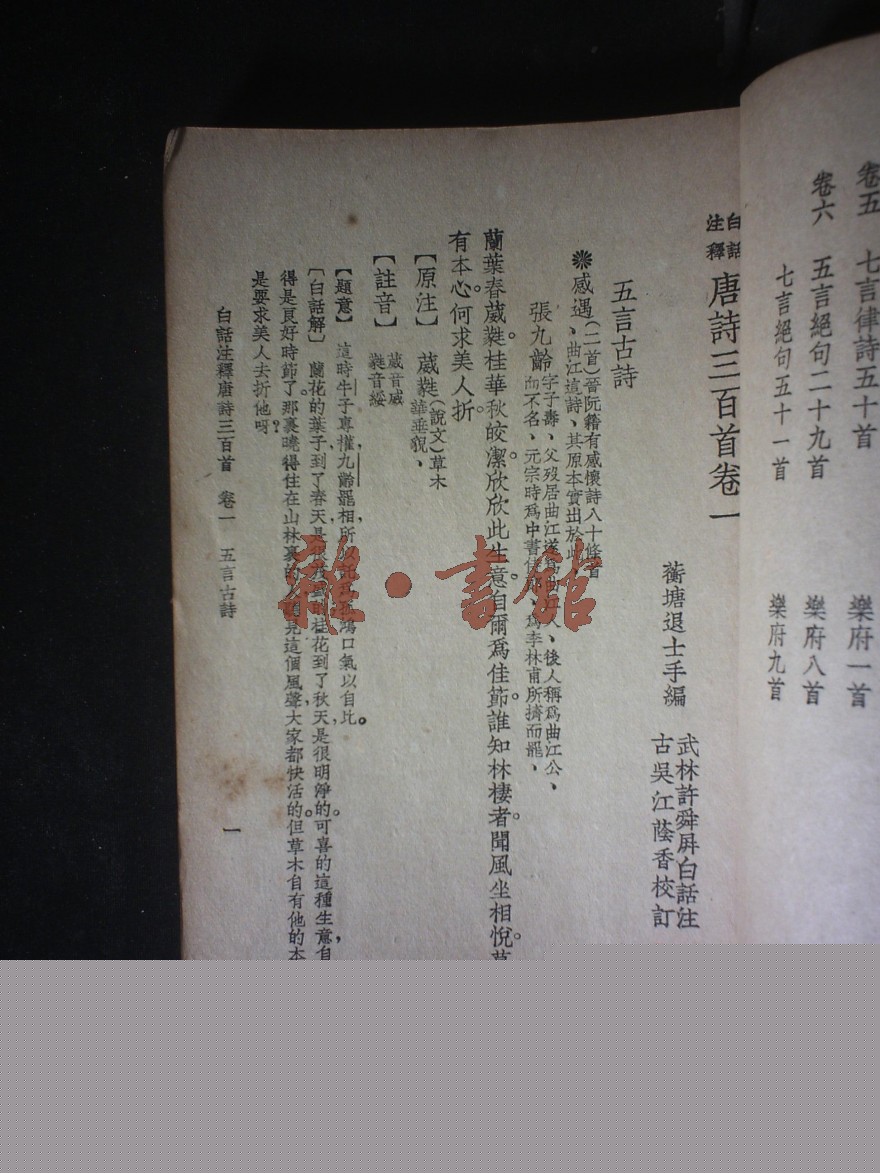 卷五　七言律詩五十首　樂府一首
卷六　五言絕句二十九首　樂府八首
七言絕句五十一首　樂府九首
白話注釋唐詩三百首卷一
蘅塘退士手編　武林許舜屏白話注
古吳江蔭香校訂
五言古詩
感遇(二首)晉阮籍有感懷詩八十條首
、曲江這詩、其原本實出於此
張九齡字子壽、父歿居曲江、後人稱爲曲江公、
而不名、元宗時爲中書、爲李林甫所擠而罷、
蘭葉春葳蕤。桂華秋皎潔。欣欣此生意。自爾爲佳節。誰知林棲者。聞風坐相悅。
有本心。何求美人折
【原注】葳蕤(說文)草木
華垂貌、
【註音】葳音威
蕤音綏
【題意】這時牛子專權、九齡罷相、所鴻口氣以自比。
【白話解】蘭花的葉子、到了春天、是很桂花到了秋天、是很明淨的。可喜的這種生意、自
得是良好時節了。那裏曉得住在山林裏的見這個風聲、大家都快活的。但草木自有他的本
是要求美人去折他呀？
白話注釋唐詩三百首　卷一　五言古詩
一
雜·書館